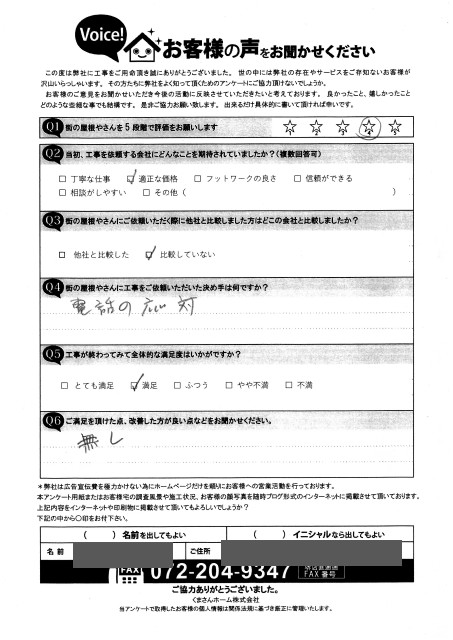 Voice!
お客様の声をお聞かせください
この度は弊社に工事をご用命頂き誠にありがとうございました。 世の中には弊社の存在やサービスをご存知ないお客様が
沢山いらっしゃいます。 その方たちに弊社をよく知って頂くためのアンケートにご協力頂けないでしょうか。
お客様のご意見をお聞かせいただき今後の活動に反映させていただきたいと考えております。 良かったこと、嬉しかったこと
どのような些細な事でも結構です。 是非ご協力お願い致します。 出来るだけ具体的に書いて頂ければ幸いです。
Q1 街の屋根やさんを5段階で評価をお願いします ☆ ☆ ☆ ☆ ☆
Q2 当初、工事を依頼する会社にどんなことを期待されていましたか?(複数回答可)
□ 丁寧な仕事 ☑ 適正な価格 □ フットワークの良さ □ 信頼ができる
□ 相談がしやすい □ その他( )
Q3 街の屋根やさんにご依頼いただく際に他社と比較しました方はどこの会社と比較しましたか?
□ 他社と比較した ☑ 比較していない
Q4 街の屋根やさんに工事をご依頼いただいた決め手は何ですか?
電話の応対
Q5 工事が終わってみて全体的な満足度はいかがですか?
□ とても満足 ☑ 満足 □ ふつう □ やや不満 □ 不満
Q6 ご満足を頂けた点、改善した方が良い点などをお聞かせください。
無し
*弊社は広告宣伝費を極力かけない為にホームページだけを頼りにお客様への営業活動を行っております。
本アンケート用紙またはお客様宅の調査風景や施工状況、お客様の顔写真を随時ブログ形式のインターネットに掲載させて頂いております。
上記内容をインターネットや印刷物に掲載させて頂いてもよろしいでしょうか?
下記の中から○印をお付け下さい。
( ) 名前を出してもよい ( ) イニシャルなら出してもよい
名 前 ご住所
FAX 072-204-9347 FAX 番号
ご協力ありがとうございました。
くまさんホーム株式会社
当アンケートで取得したお客様の個人情報は関係法規に基づき厳正に管理いたします。